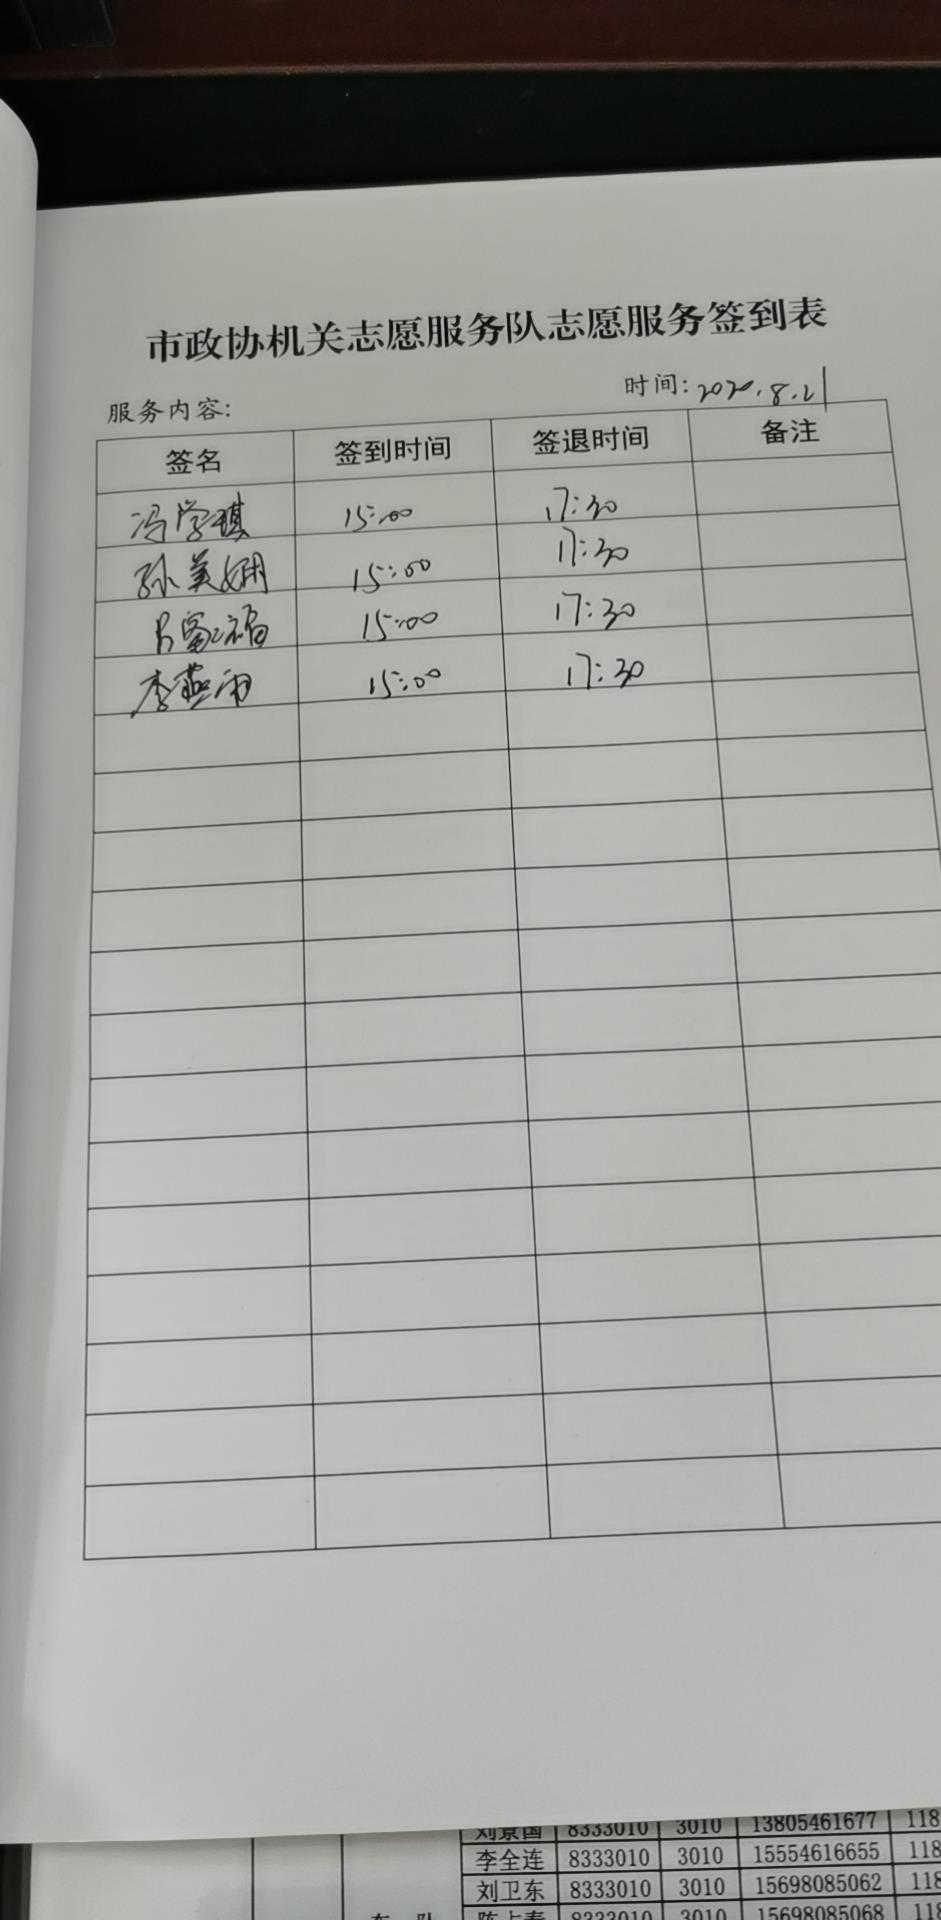 市政协机关志愿服务队志愿服务签到表
服务内容: 时间: 2020.8.21
签名 签到时间 签退时间 备注
冯学琪 15:00 17:30
孙美娴 15:00 17:30
15:00 17:30
李燕雨 15:00 17:30
刘景国 8333010 3010 13805461677 118
李全连 8333010 3010 15554616655 118
刘卫东 8333010 3010 15698085062 118
车 队 陈占春 8333010 3010 15698085068 118